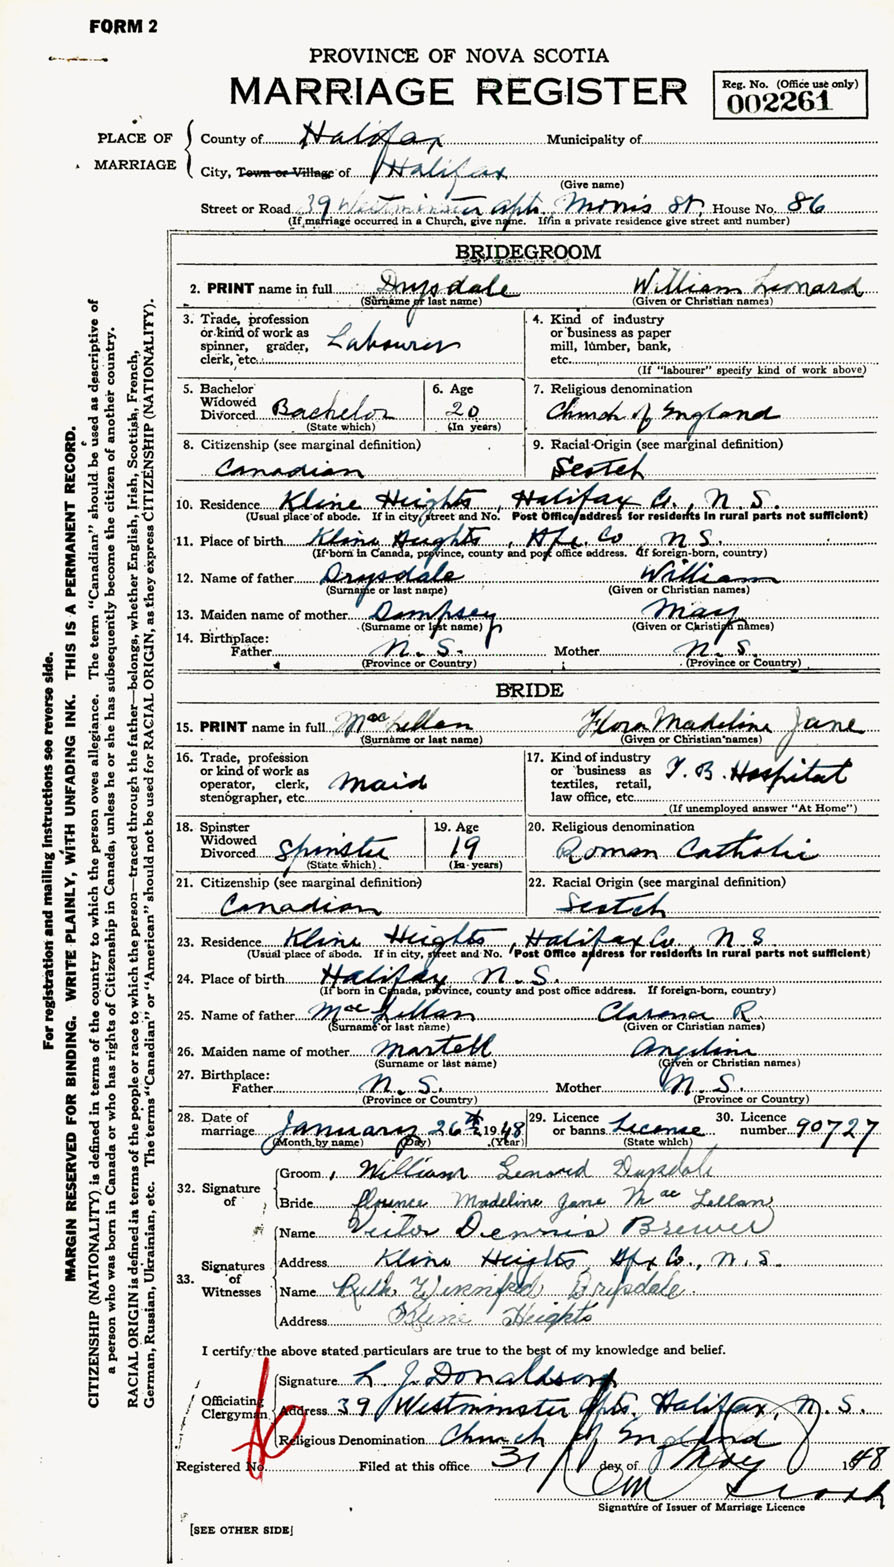 FORM 2
PROVINCE OF NOVA SCOTIA
MARRIAGE REGISTER
Reg. No. (Office use only)
002261
PLACE OF MARRIAGE
County of Halifax Municipality of
City, Town or Village of Halifax
(Give name)
Street or Road 39 Westminster Apts. Morris St, House No. 86
(If marriage occurred in a Church, give name. If in a private residence give street and number)
BRIDEGROOM
2. PRINT name in full Drysdale William Leonard
(Surname or last name) (Given or Christian names)
3. Trade, profession or kind of work as spinner, grader, clerk, etc. Labourer
4. Kind of industry or business as paper mill, lumber, bank, etc.
(If "labourer" specify kind of work above)
5. Bachelor Widowed Divorced Bachelor
(State which)
6. Age 20
(In years)
7. Religious denomination
Church of England
8. Citizenship (see marginal definition)
Canadian
9. Racial Origin (see marginal definition)
Scotch
10. Residence Kline Heights, Halifax Co., N.S.
(Usual place of abode. If in city, street and No. Post Office address for residents in rural parts not sufficient)
11. Place of birth Kline Heights, Hfx. Co., N.S.
(If born in Canada, province, county and post office address. If foreign-born, country)
12. Name of father Drysdale William
(Surname or last name) (Given or Christian names)
13. Maiden name of mother Dempsey May
(Surname or last name) (Given or Christian names)
14. Birthplace:
Father N.S. Mother N.S.
(Province or Country) (Province or Country)
BRIDE
15. PRINT name in full MacLellan Flora Madeline Jane
(Surname or last name) (Given or Christian names)
16. Trade, profession or kind of work as operator, clerk, stenographer, etc. Maid
17. Kind of industry or business as textiles, retail, law office, etc. T.B. Hospital
(If unemployed answer "At Home")
18. Spinster Widowed Divorced Spinster
(State which)
19. Age 19
(In years)
20. Religious denomination
Roman Catholic
21. Citizenship (see marginal definition)
Canadian
22. Racial Origin (see marginal definition)
Scotch
23. Residence Kline Heights, Halifax Co., N.S.
(Usual place of abode. If in city, street and No. Post Office address for residents in rural parts not sufficient)
24. Place of birth Halifax N.S.
(If born in Canada, province, county and post office address. If foreign-born, country)
25. Name of father MacLellan Clarence R.
(Surname or last name) (Given or Christian names)
26. Maiden name of mother Martell Angeline
(Surname or last name) (Given or Christian names)
27. Birthplace:
Father N.S. Mother N.S.
(Province or Country) (Province or Country)
28. Date of marriage January 26th 1948
(Month by name) (Day) (Year)
29. Licence or banns License
(State which)
30. Licence number 90727
32. Signature of
Groom William Leonard Drysdale
Bride Florence Madeline Jane MacLellan
33. Signatures of Witnesses
Name Victor Dennis Brewer
Address Kline Heights, Hfx Co., N.S.
Name Ruth Winnifred Drysdale
Address Kline Heights
I certify the above stated particulars are true to the best of my knowledge and belief.
Officiating Clergyman
Signature L. J. Donaldson
Address 39 Westminster Apts. Halifax, N.S.
Religious Denomination Church of England
Registered No. Filed at this office 31 day of May 1948
Signature of Issuer of Marriage Licence
[SEE OTHER SIDE]
For registration and mailing instructions see reverse side.
MARGIN RESERVED FOR BINDING. WRITE PLAINLY, WITH UNFADING INK. THIS IS A PERMANENT RECORD.
CITIZENSHIP (NATIONALITY) is defined in terms of the country to which the person owes allegiance. The term "Canadian" should be used as descriptive of
a person who was born in Canada or who has rights of Citizenship in Canada, unless he or she has subsequently become the citizen of another country.
RACIAL ORIGIN is defined in terms of the people or race to which the person—traced through the father—belongs, whether English, Irish, Scottish, French,
German, Russian, Ukrainian, etc. The terms "Canadian" or "American" should not be used for RACIAL ORIGIN, as they express CITIZENSHIP (NATIONALITY).